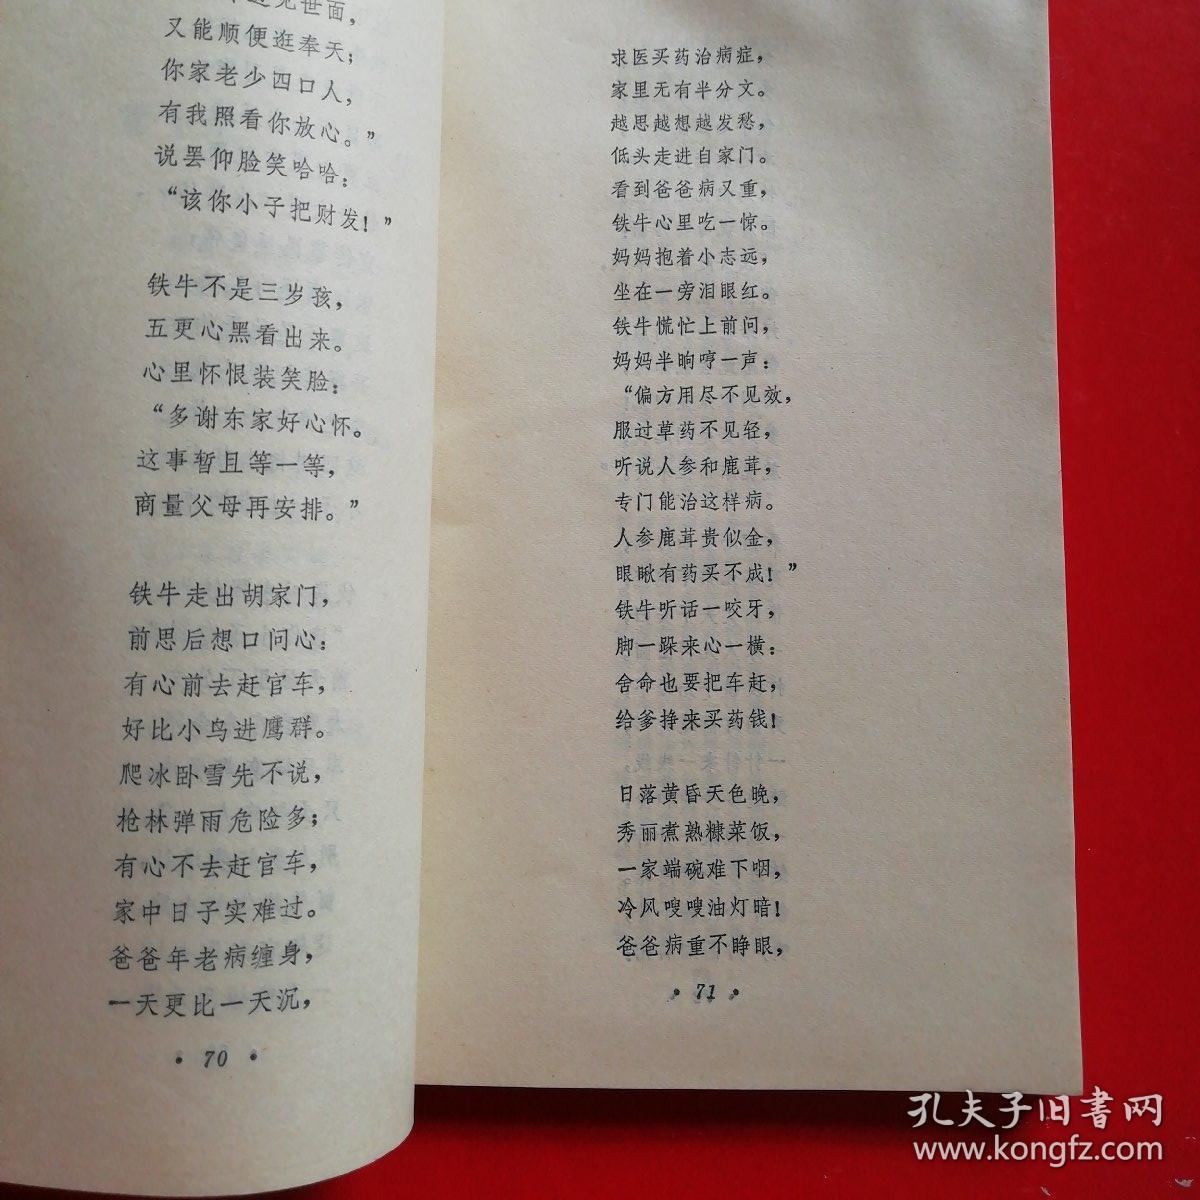 见世面，
又能顺便逛奉天；
你家老少四口人，
有我照看你放心。”
说罢仰脸笑哈哈：
“该你小子把财发！”
铁牛不是三岁孩，
五更心黑看出来。
心里怀恨装笑脸：
“多谢东家好心怀。
这事暂且等一等，
商量父母再安排。”
铁牛走出胡家门，
前思后想口问心：
有心前去赶官车，
好比小鸟进鹰群。
爬冰卧雪先不说，
枪林弹雨危险多；
有心不去赶官车，
家中日子实难过。
爸爸年老病缠身，
一天更比一天沉，
• 70 •
求医买药治病症，
家里无有半分文。
越思越想越发愁，
低头走进自家门。
看到爸爸病又重，
铁牛心里吃一惊。
妈妈抱着小志远，
坐在一旁泪眼红。
铁牛慌忙上前问，
妈妈半晌哼一声：
“偏方用尽不见效，
服过草药不见轻，
听说人参和鹿茸，
专门能治这样病。
人参鹿茸贵似金，
眼瞅有药买不成！”
铁牛听话一咬牙，
脚一跺来心一横：
舍命也要把车赶，
给爹挣来买药钱！
日落黄昏天色晚，
秀丽煮熟糠菜饭，
一家端碗难下咽，
冷风嗖嗖油灯暗！
爸爸病重不睁眼，
• 71 •
孔夫子旧书网
www.kongfz.com